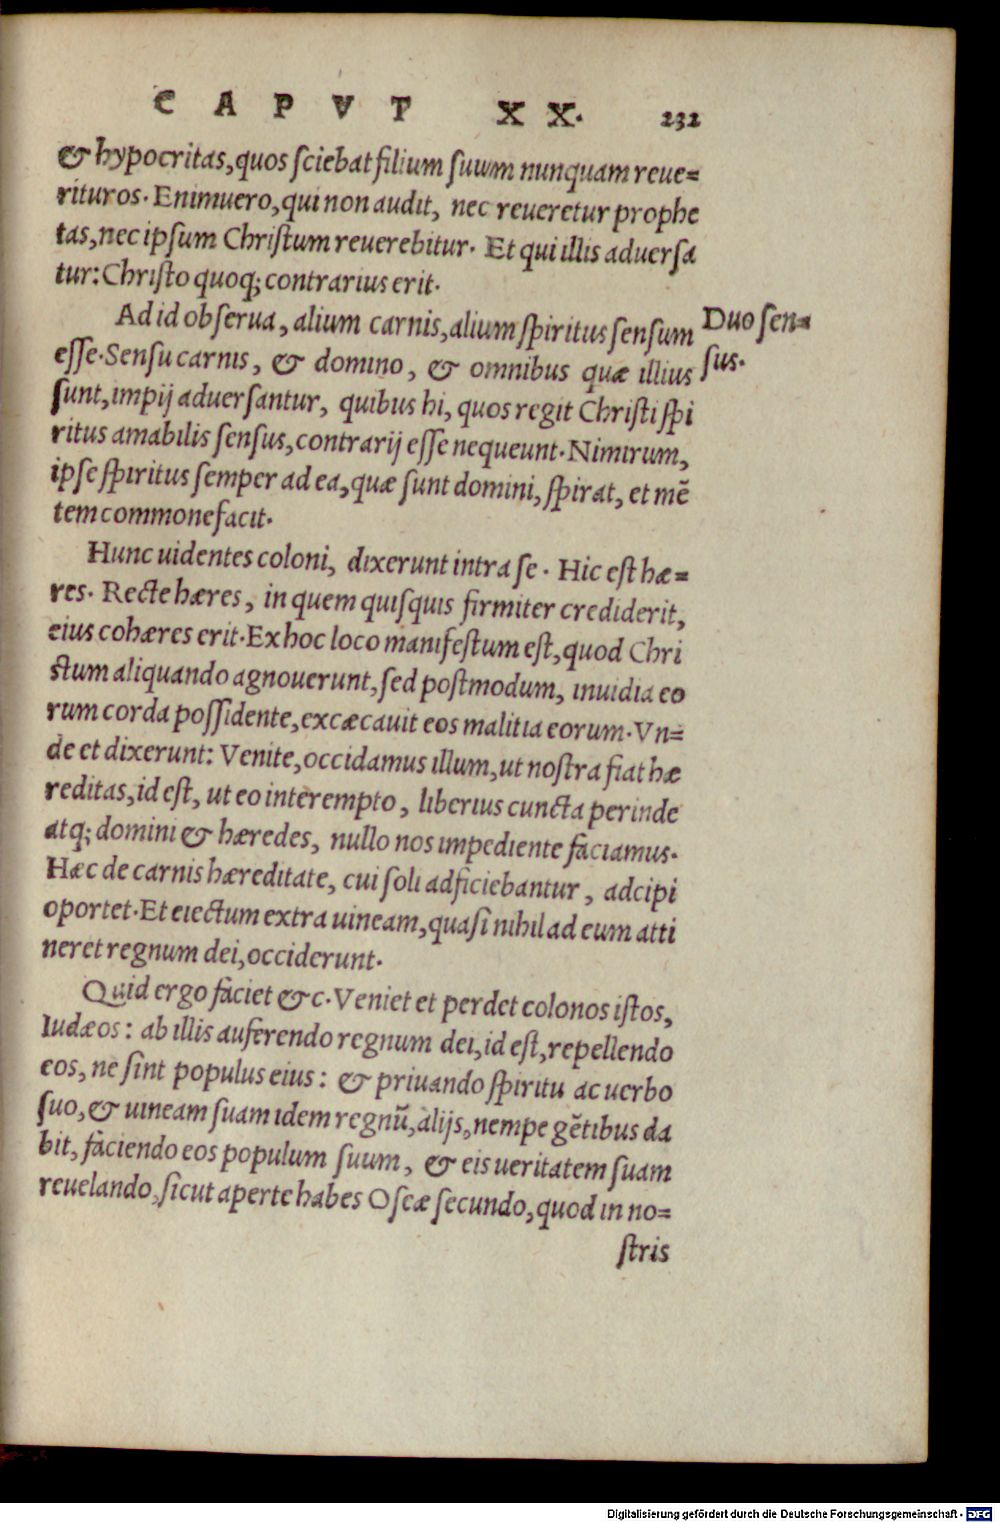 CAPVT XX. 232
& hypocritas, quos sciebat filium suum nunquam reue=
rituros. Enimuero, qui non audit, nec reueretur prophe
tas, nec ipsum Christum reuerebitur. Et qui illis aduersa
tur: Christo quoq; contrarius erit.
Ad id obserua, alium carnis, alium spiritus sensum
Duo sen=
esse. Sensu carnis, & domino, & omnibus quæ illius
sus.
sunt, impij aduersantur, quibus hi, quos regit Christi spi
ritus amabilis sensus, contrarij esse nequeunt. Nimirum,
ipse spiritus semper ad ea, quæ sunt domini, spirat, et mē
tem commonefacit.
Hunc uidentes coloni, dixerunt intra se. Hic est hæ=
res. Recte hæres, in quem quisquis firmiter crediderit,
eius cohæres erit. Ex hoc loco manifestum est, quod Chri
stum aliquando agnouerunt, sed postmodum, inuidia eo
rum corda possidente, excæcauit eos malitia eorum. Vn=
de et dixerunt: Venite, occidamus illum, ut nostra fiat hæ
reditas, id est, ut eo interempto, liberius cuncta perinde
atq; domini & hæredes, nullo nos impediente faciamus.
Hæc de carnis hæreditate, cui soli adficiebantur, adcipi
oportet. Et eiectum extra uineam, quasi nihil ad eum atti
neret regnum dei, occiderunt.
Quid ergo faciet &c. Veniet et perdet colonos istos,
Iudæos: ab illis auferendo regnum dei, id est, repellendo
eos, ne sint populus eius: & priuando spiritu ac uerbo
suo, & uineam suam idem regnū, alijs, nempe gētibus da
bit, faciendo eos populum suum, & eis ueritatem suam
reuelando, sicut aperte habes Oseæ secundo, quod in no=
stris
Digitalisierung gefördert durch die Deutsche Forschungsgemeinschaft - DFG